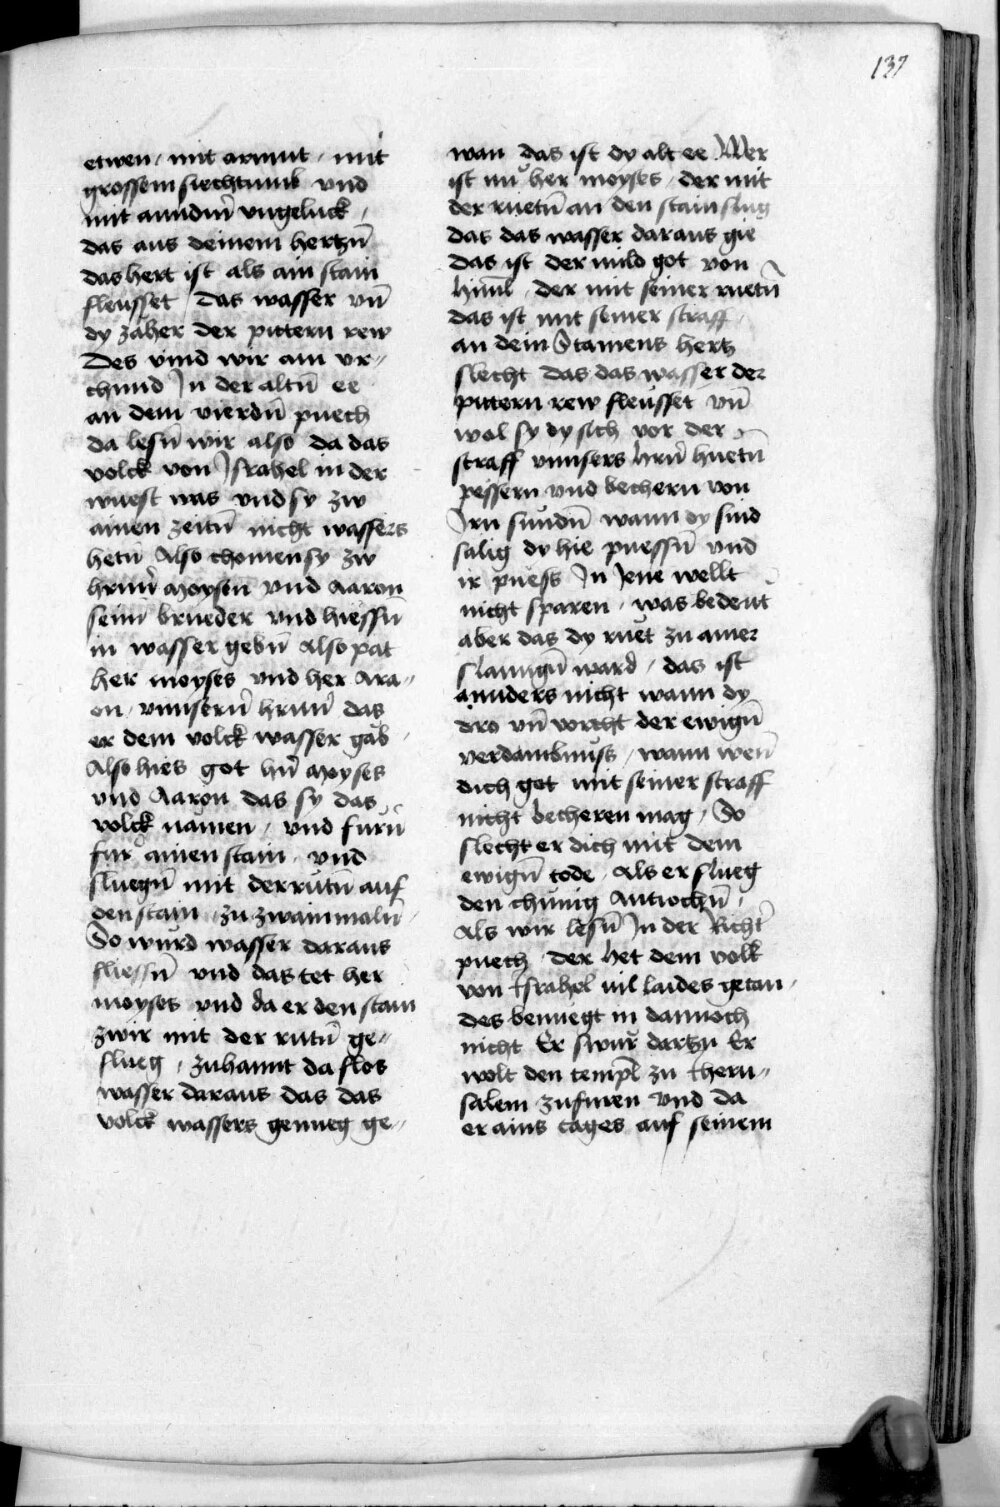 137
etwen / mit armut / mit
grossem siechtumb vnd
mit anndm̄ vngeluck /
das aus deinem hertzn̄
das hert ist als ain stain
fleusset / das wasser vn̄
dy zäher der pittern rew
Des vind wir ain vr=
chund Jn der altn̄ ee
an dem vierdn̄ puech
da lesn̄ wir also da das
volck von Jsrahel in der
wuest was vnd sy zw
ainen zeitn̄ nicht wassers
hetn̄ Also chomen sy zw
hrnn̄ Moysen vnd Aaron
seinn brueder vnd hiessn̄
in wasser gebn̄ Also pat
her moyses vnd her Ara=
on / vnnsern̄ hrnn̄ das
er dem volck wasser gäb /
Also hies got hn̄ Moyses
vnd Aaron das sy das
volck nämen / vnd furn̄
für ainen stain / vnd
sluegn̄ mit der rutn̄ auf
den stain / zu zwain maln̄
So wurd wasser daraus
fliessn̄ vnd das tet her
moyses vnd da er den stain
zwir mit der rutn̄ ge=
slueg / zuhannt da flos
wasser daraus das das
volck wassers genueg ge=
wan das ist dy alt ee Wer
ist nu her moyses / der mit
der ruetn̄ an den stain slug
das das wasser daraus gie
das ist der mild got von
himl / der mit seiner ruetn̄
das ist mit seiner straff /
an dein Stainens hertz
slecht das das wasser der
pittern rew fleusset vn̄
wol sy dy sich vor der
straff vnnsers hrn̄ huetn̄
pessern vnd becheren von
Jrn sundn̄ wann dy sind
salig dy hie puessn̄ vnd
ir puess Jn Jene wellt
nicht sparen / was bedeut
aber das dy ruet zu ainer
slanngn̄ ward / das ist
annders nicht wann dy
dro vn̄ vorcht der ewign̄
verdambnuss / wann wen̄
dich got mit seiner straff
nicht becheren mag / So
slecht er dich mit dem
ewign̄ tode / Als er slueg
den chunig Antiochn̄ /
Als wir lesn̄ Jn der Richt̄
puech / der het dem volk
von Jsrahel vil laides getan /
des benuegt in dannoch
nicht Er swur dartzu Er
wolt den templ zu Jheru=
salem zufuren vnd da
er ains tages auf seinem